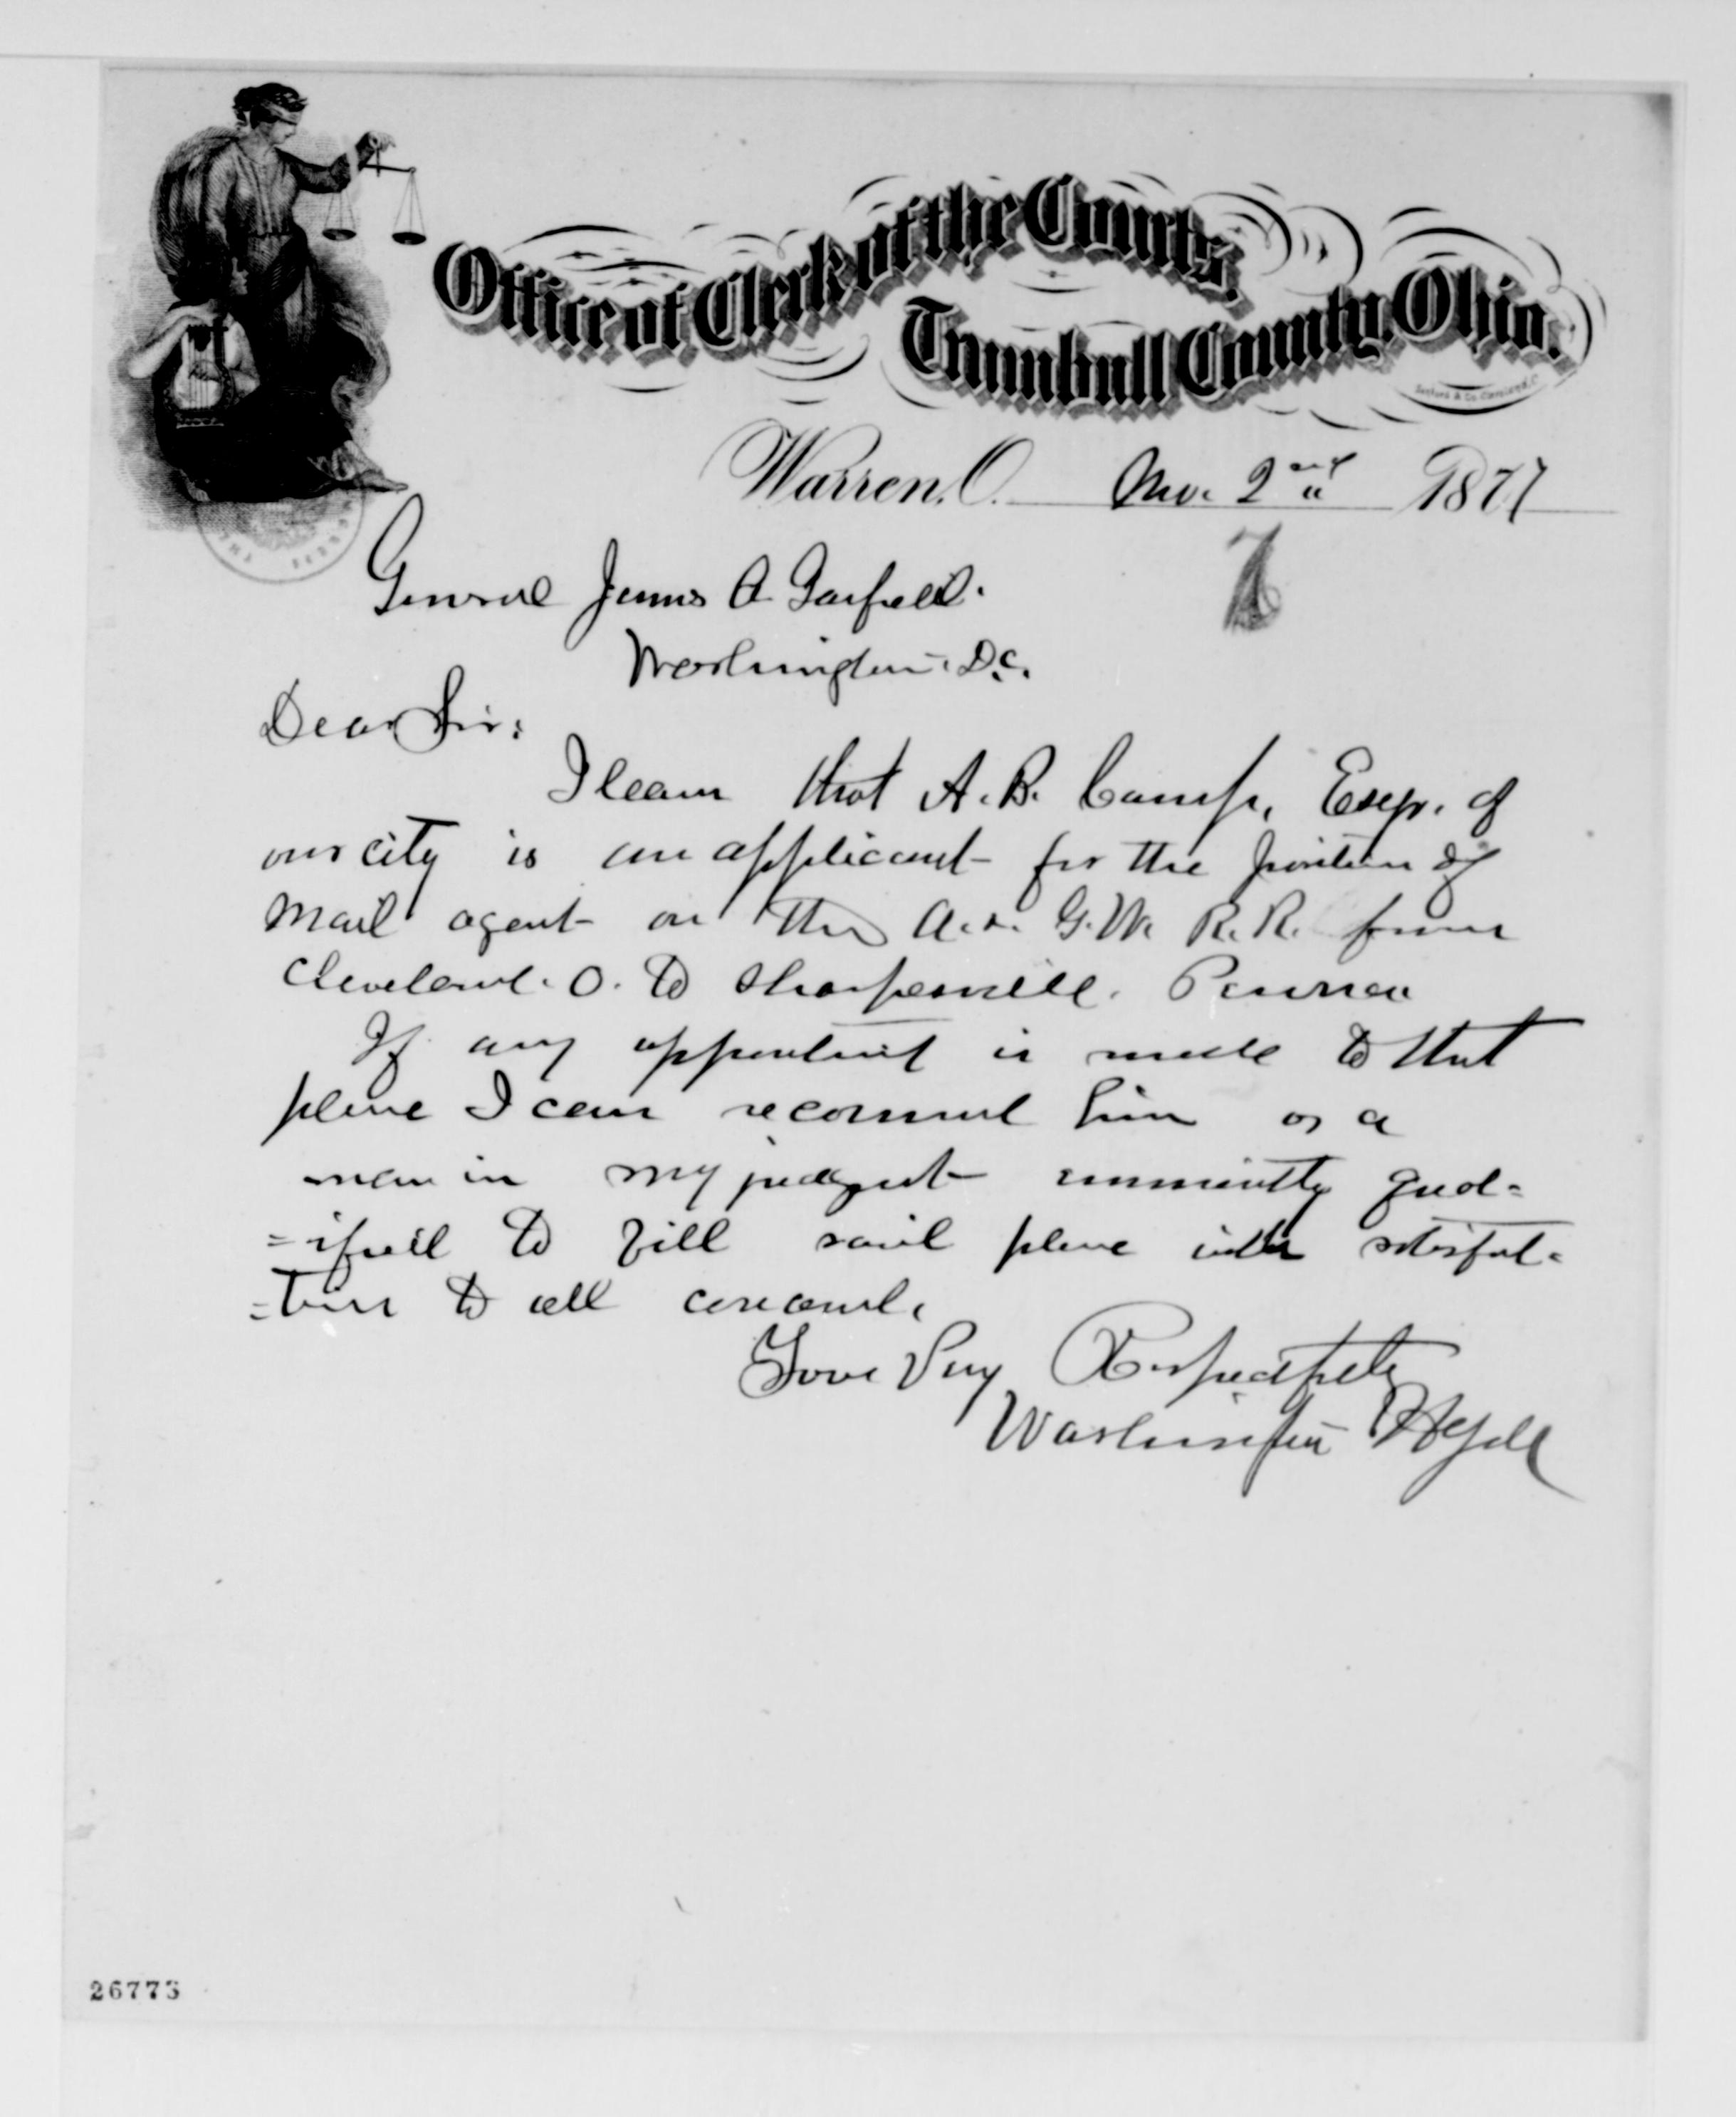 Office of Clerk of the Courts,
Trumbull County, Ohio.
Warren, O. Nov. 2nd 1877
General James A Garfield.
Washington. D.C.
Dear Sir:
I learn that A. B. Camp, Esqr. of
our city is an applicant for the position of
Mail agent on the A. & G. W. R. R. from
Cleveland. O. to Sharpesville. Penna
If any appointment is made to that
place I can recommend him as a
man in my judgment eminently qual=
=ified to fill said place with satisfac=
=tion to all concerned.
Yours Very Respectfully
Washington Hyde
26773